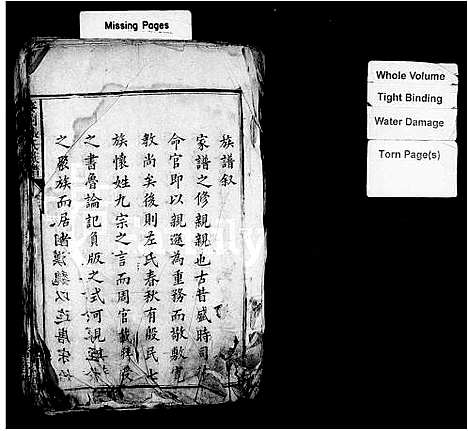 Missing Pages
Whole Volume
Tight Binding
Water Damage
Torn Page(s)
族譜叙
家譜之修親親也古昔盛時司
命官即以親遜為重務而敬敷
教尚矣後則左氏春秋有殷民七
族懷姓九宗之言而周官載
之書魯論記負版之式河
之族而居漢魏以迄唐宋